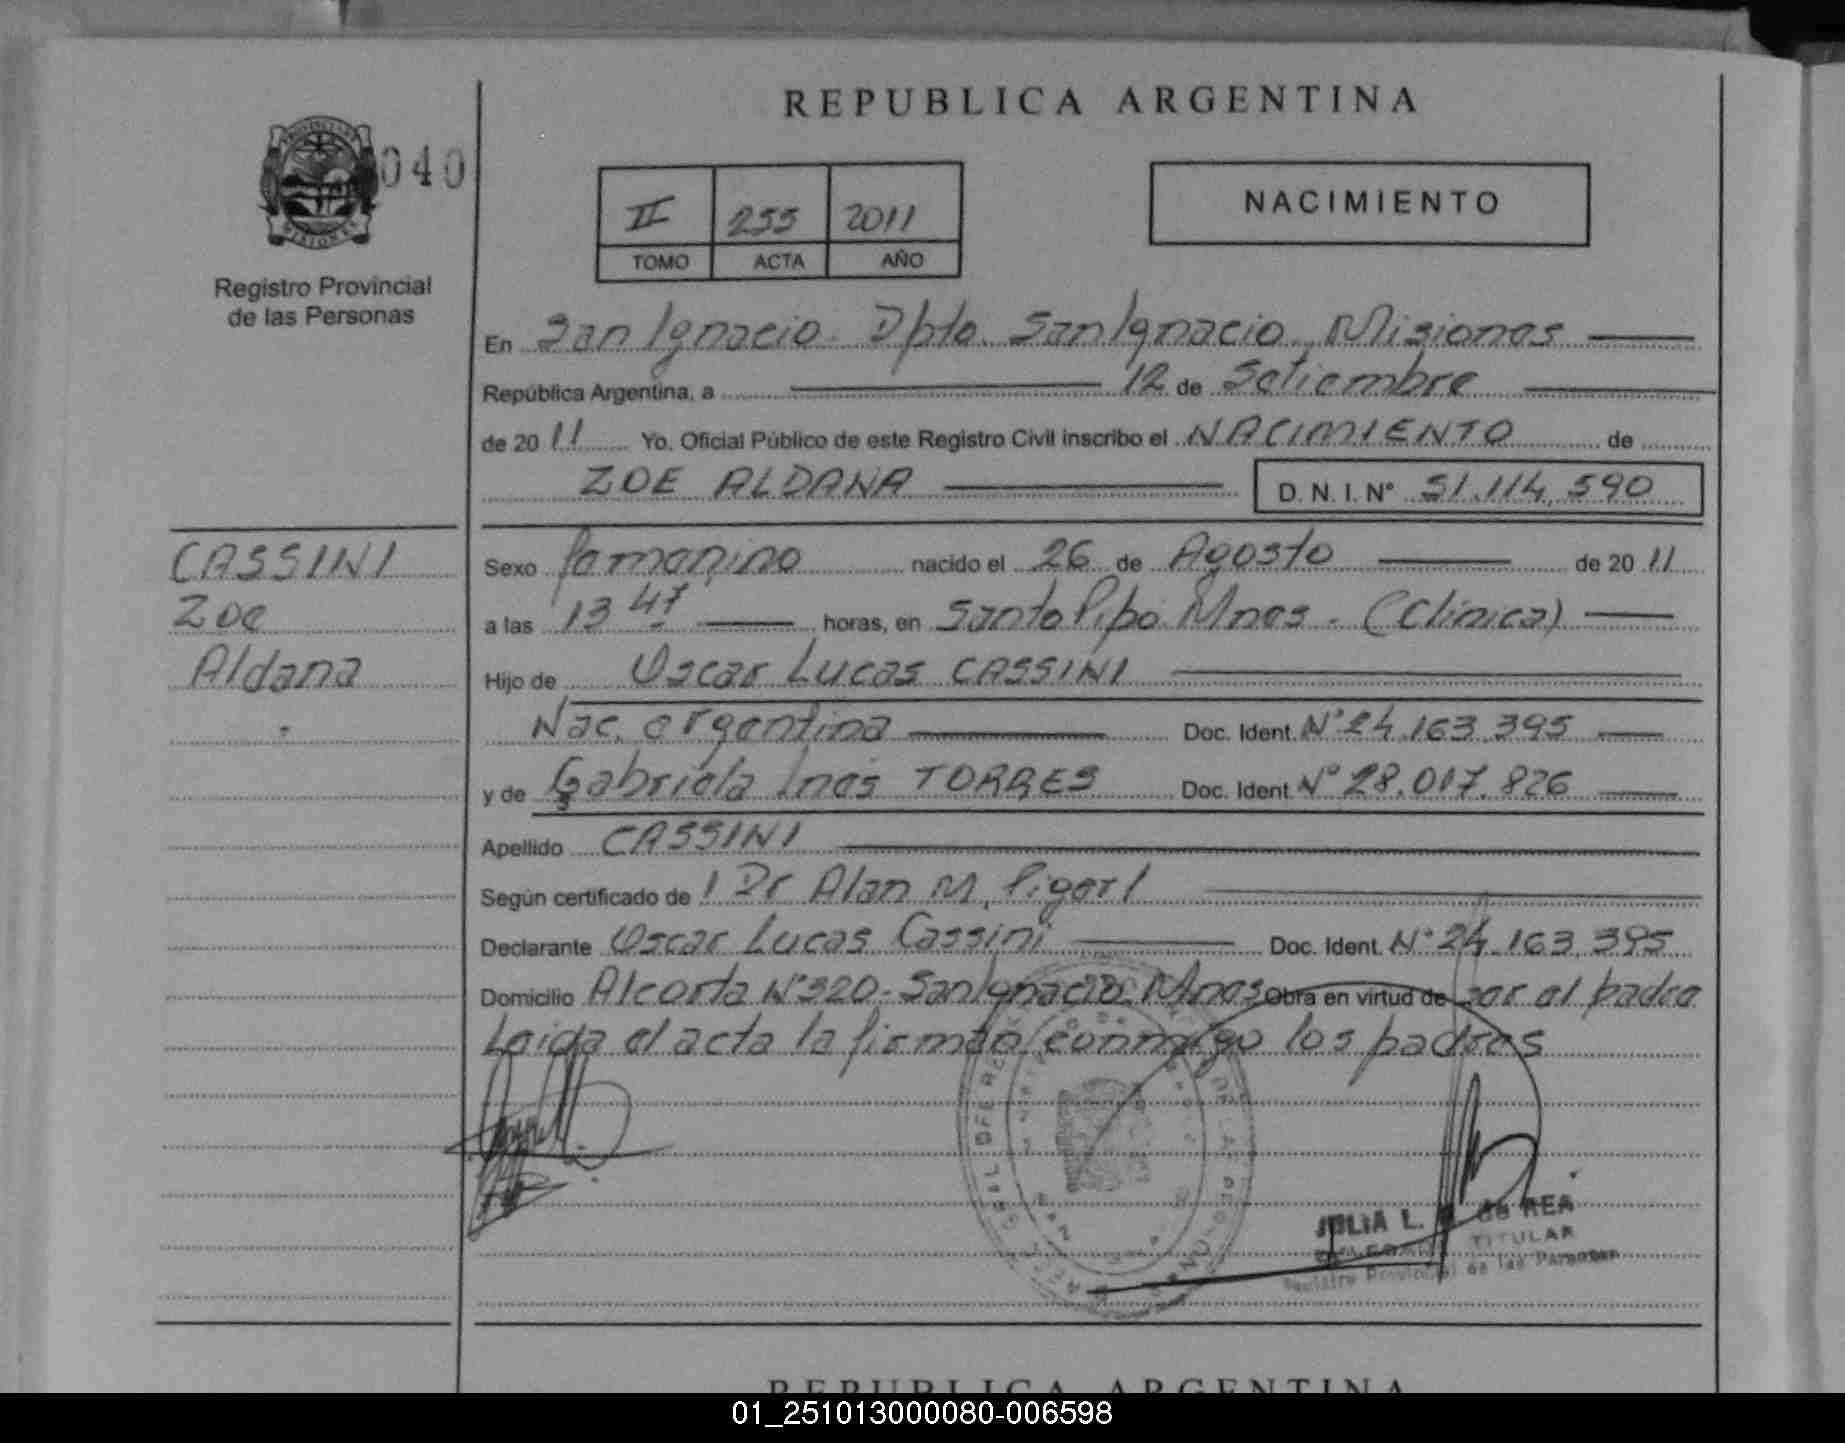 REPUBLICA ARGENTINA
040
II 255 2011
TOMO ACTA AÑO
NACIMIENTO
Registro Provincial
de las Personas
En San Ignacio. Dpto. San Ignacio, Misiones
República Argentina, a 12 de Setiembre
de 20 11 Yo, Oficial Público de este Registro Civil inscribo el NACIMIENTO de
ZOE ALDANA D. N. I. N° 51.114.590
CASSINI
Zoe
Aldana
Sexo femenino nacido el 26 de Agosto de 20 11
a las 13 47 horas, en Santo Pipó Mnes. (Clínica)
Hijo de Oscar Lucas CASSINI
Nac. argentina Doc. Ident. N° 24.163.395
y de Gabriela Ines TORRES Doc. Ident. N° 28.017.826
Apellido CASSINI
Según certificado de Dr Alan M.
Declarante Oscar Lucas Cassini Doc. Ident. N° 24.163.395
Domicilio Alcorta N° 320 - San Ignacio Mnes Obra en virtud de ser el padre
Leida el acta la firman conmigo los padres
JULIA L. de REA
TITULAR
Registro Provincial de las Personas
REPUBLICA ARGENTINA
01_251013000080-006598